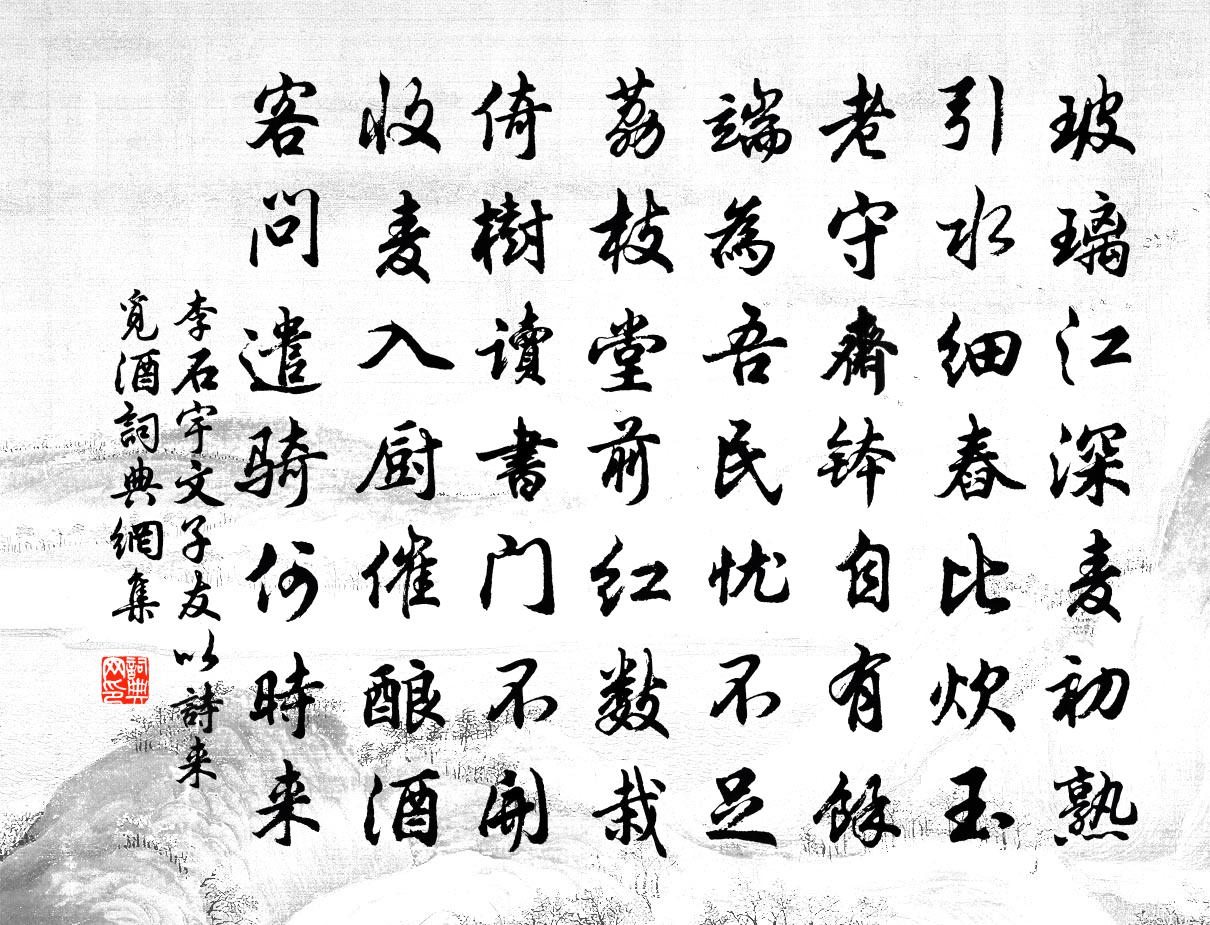 玻璃江深麦初熟
引水细舂比炊玉
老守齋钵自有餘
端為吾民忧不足
荔枝堂前红数栽
倚樹讀書门不開
收麦入厨催酿酒
客問遣骑何時来
李石宇文子友以詩来
覓酒詞典網集
詞典网印